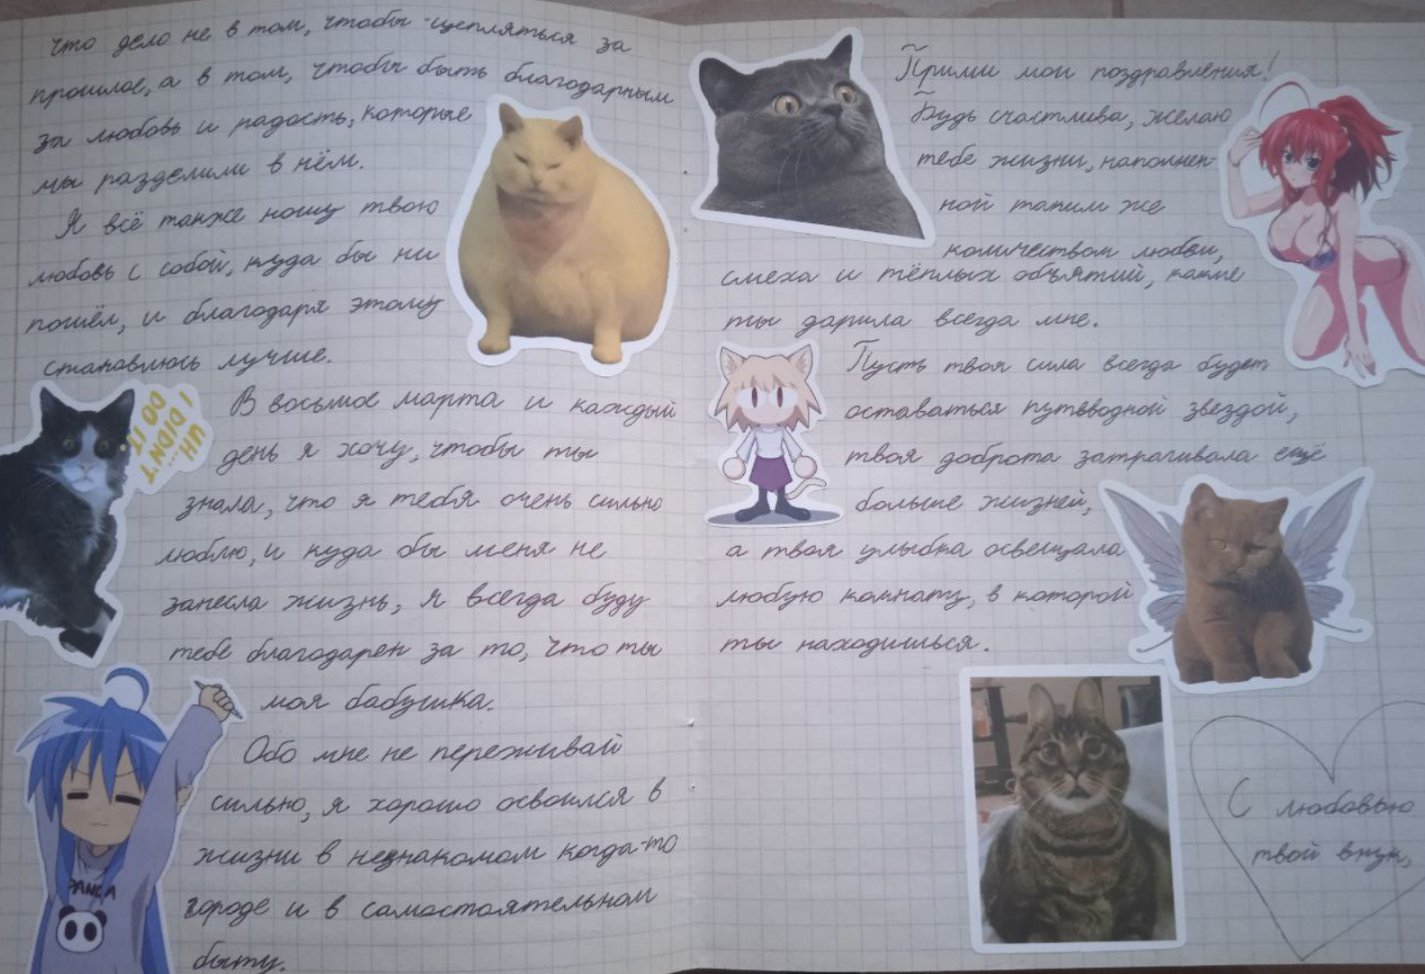 что дело не в том, чтобы цепляться за
прошлое, а в том, чтобы быть благодарным
за любовь и радость, которые
мы разделили в нём.
Я всё также ношу твою
любовь с собой, куда бы ни
пошёл, и благодаря этому
становлюсь лучше.
UH...
I DIDN'T
DO IT
В восьмое марта и каждый
день я хочу, чтобы ты
знала, что я тебя очень сильно
люблю, и куда бы меня не
занесла жизнь, я всегда буду
тебе благодарен за то, что ты
моя бабушка.
Обо мне не переживай
сильно, я хорошо освоился в
жизни в незнакомом когда-то
городе и в самостоятельном
быту.
PANDA
Прими мои поздравления!
Будь счастлива, желаю
тебе жизни, наполнен-
ной таким же
количеством любви,
смеха и тёплых объятий, какие
ты дарила всегда мне.
Пусть твоя сила всегда будет
оставаться путеводной звездой,
твоя доброта затрагивала ещё
больше жизней,
а твоя улыбка освещала
любую комнату, в которой
ты находишься.
С любовью
твой внук,